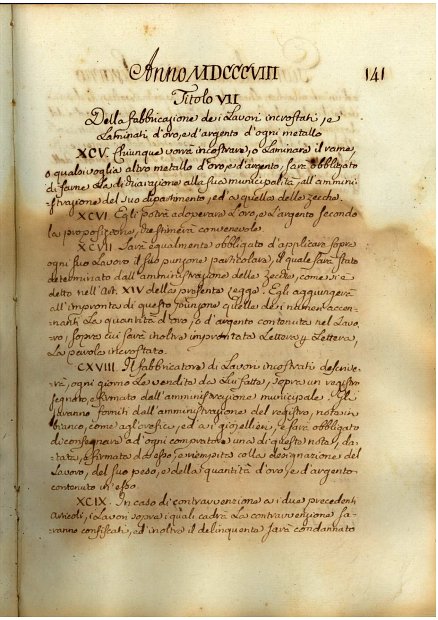 Anno MDCCCVIII
141
Titolo VII
Della fabbricazione de i Lavori incrostati, e
Laminati d'oro, e d'argento d'ogni metallo
XCV. Chiunque vorrà incrostare, o Laminare il rame,
o qualsivoglia altro metallo d'oro, e d'argento, sarà obbligato
di farne La dichiarazione alla sua municipalità, all'ammini-
strazione del suo dipartimento, ed a quella delle zecche.
XCVI. Egli potrà adoperare L'oro, e L'argento secondo
la proposizione, che stimerà convenevole.
XCVII. Sarà egualmente obbligato d'applicare sopra
ogni suo Lavoro il suo punzone particolare, il quale sarà stato
determinato dall'amministrazione delle zecche, come si è
detto nell'Art. XIV della presente Legge. Egli aggiungerà
all'impronta di questo punzone quella de i numeri accen-
nanti La quantità d'oro, o d'argento contenuta nel Lavo-
ro, sopra cui sarà inoltre improntata Lettera, p Lettera,
La parola incrostato.
CXVIII. Il fabbricatore di Lavori incrostati descrive-
rà, ogni giorno Le vendite da Lui fatte, sopra un registro
segnato, e firmato dell'amministrazione municipale. Gli
saranno forniti dall'amministrazione del registro, note in
bianco, come agl'orefici, ed a i giojellieri, e sarà obbligato
di consegnare ad ogni compratore una di queste note, da-
tata, e firmata da esso, e riempita colla designazione del
Lavoro, del suo peso, e della quantità d'oro, e d'argento
contenuto in esso.
XCIX. In caso di contravvenzione a i due precedenti
articoli, i Lavori sopra i quali cadrà La contravvenzione sa-
ranno confiscati, ed inoltre il delinquente sarà condannato